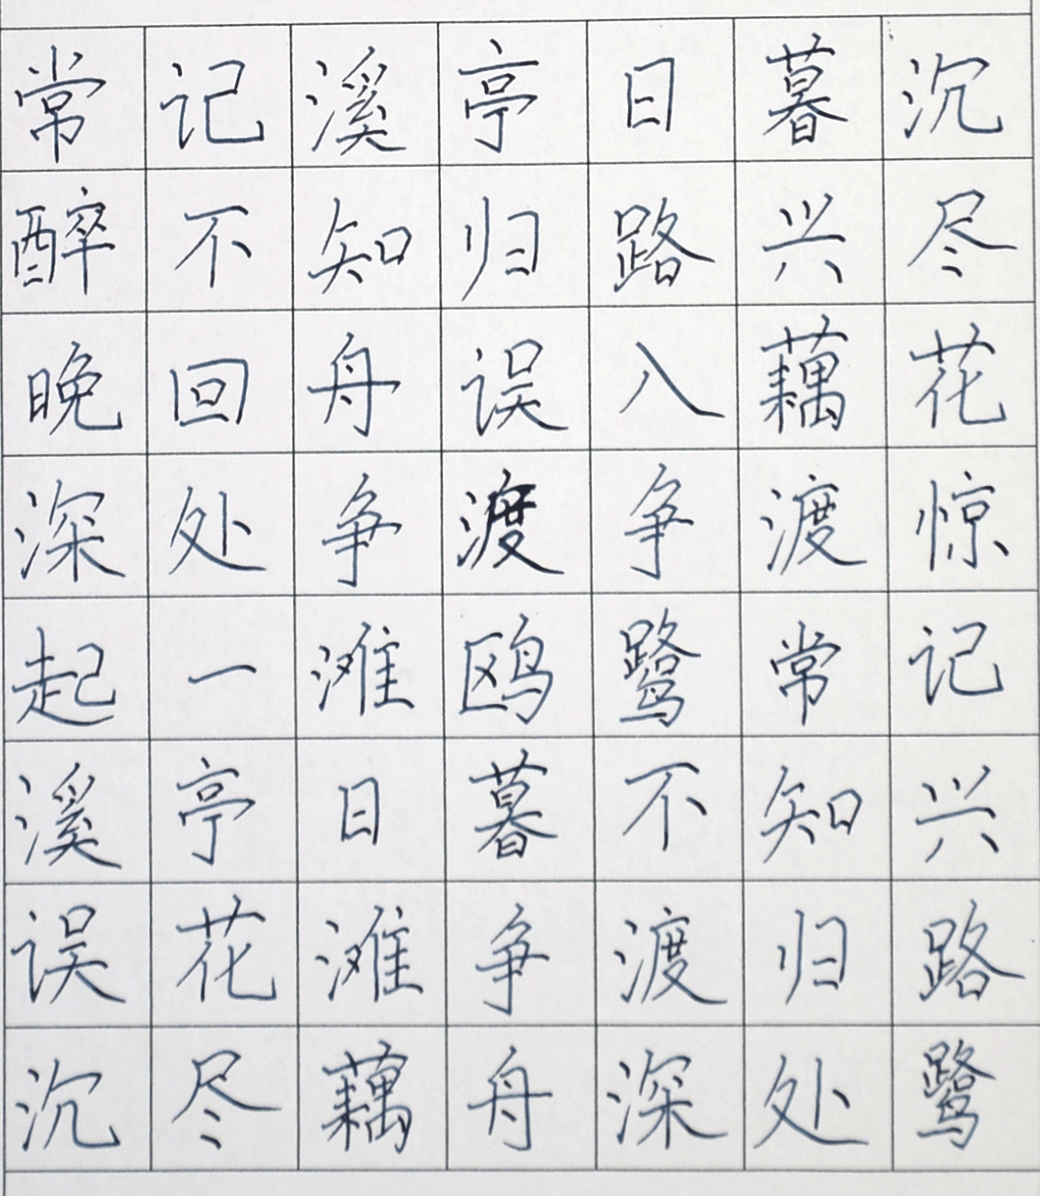 常记溪亭日暮沉
醉不知归路兴尽
晚回舟误入藕花
深处争渡争渡惊
起一滩鸥鹭常记
溪亭日暮不知兴
误花滩争渡归路
沉尽藕舟深处鹭